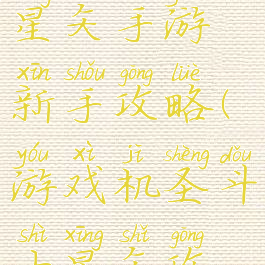 星矢手游
xīn shǒu gōng lüè
新手攻略(
yóu xì jī shèng dòu
游戏机圣斗
shì xīng shǐ gōng